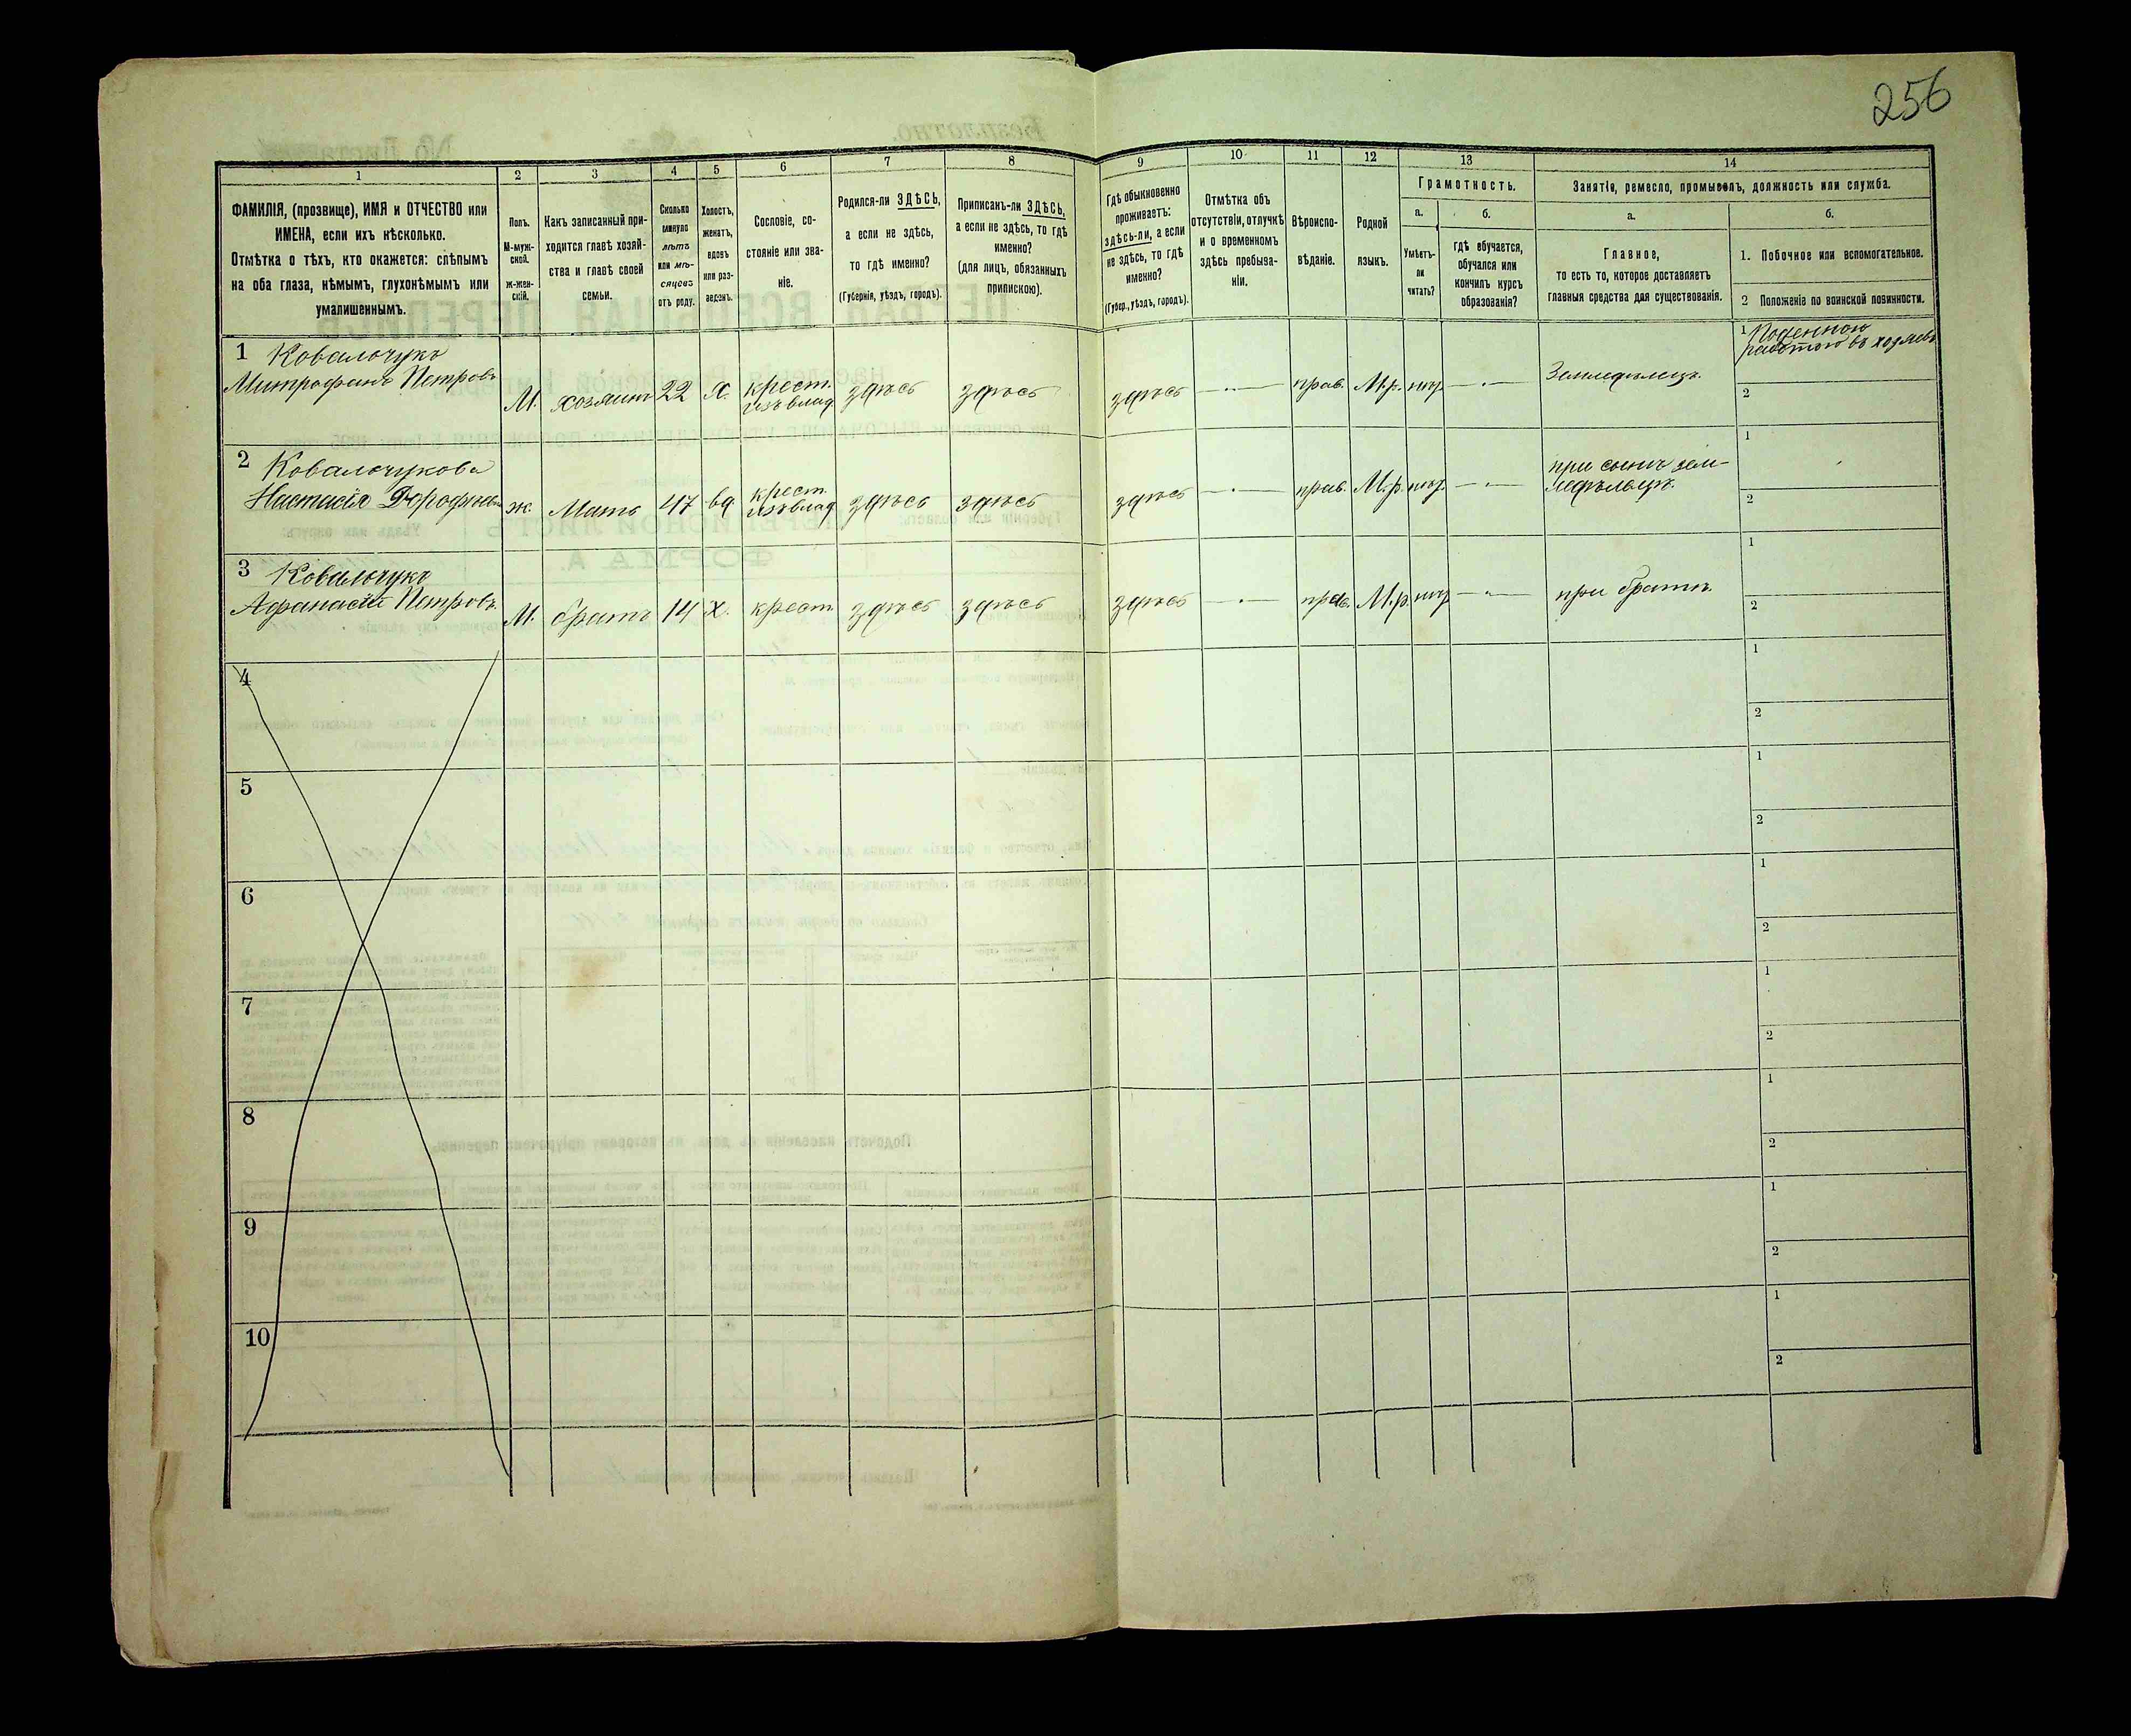 256
1
2
3
4
5
6
7
8
9
10
11
12
13
14
ФАМИЛІЯ, (прозвище), ИМЯ и ОТЧЕСТВО или
ИМЕНА, если ихъ нѣсколько.
Отмѣтка о тѣхъ, кто окажется: слѣпымъ
на оба глаза, нѣмымъ, глухонѣмымъ или
умалишеннымъ.
Полъ.
М-муж-
ской.
ж-жен-
скій.
Какъ записанный при-
ходится главѣ хозяй-
ства и главѣ своей
семьи.
Сколько
минуло
лѣтъ
или мѣ-
сяцевъ
отъ роду.
Холостъ,
женатъ,
вдовъ
или раз-
веденъ.
Сословіе, со-
стояніе или зва-
ніе.
Родился-ли ЗДѢСЬ,
а если не здѣсь,
то гдѣ именно?
(Губернія, уѣздъ, городъ).
Приписанъ-ли ЗДѢСЬ,
а если не здѣсь, то гдѣ
именно?
(для лицъ, обязанныхъ
припискою).
Гдѣ обыкновенно
проживаетъ:
здѣсь-ли, а если
не здѣсь, то гдѣ
именно?
(Губер., уѣздъ, городъ).
Отмѣтка объ
отсутствіи, отлучкѣ
и о временномъ
здѣсь пребыва-
ніи.
Вѣроиспо-
вѣданіе.
Родной
языкъ.
Грамотность.
а.
б.
Умѣетъ-
ли
читать?
гдѣ обучается,
обучался или
кончилъ курсъ
образованія?
Занятіе, ремесло, промыселъ, должность или служба.
а.
б.
Главное,
то есть то, которое доставляетъ
главныя средства для существованія.
1. Побочное или вспомогательное.
2 Положеніе по воинской повинности.
1 Ковальчукъ
Митрофанъ Петровъ
М. хозяинъ 22 х. крест.
изъ влад. здѣсь здѣсь здѣсь — · — прав. М.р. нѣт — · — Земледѣлецъ.
1 Поденною
работою въ
2
2 Ковальчукова
Настасія Дорофѣева
ж. Мать 47 вд крест.
изъ влад. здѣсь здѣсь здѣсь — · — прав. М.р. нѣт. — · — при сынѣ зем-
ледѣлецъ.
1
2
3 Ковальчукъ
Афанасій Петровъ.
М. братъ 14 х. крест. здѣсь здѣсь здѣсь — · — прав. М.р. нѣт — · — при братѣ.
1
2
4
1
2
5
1
2
6
1
2
7
1
2
8
1
2
9
1
2
10
1
2